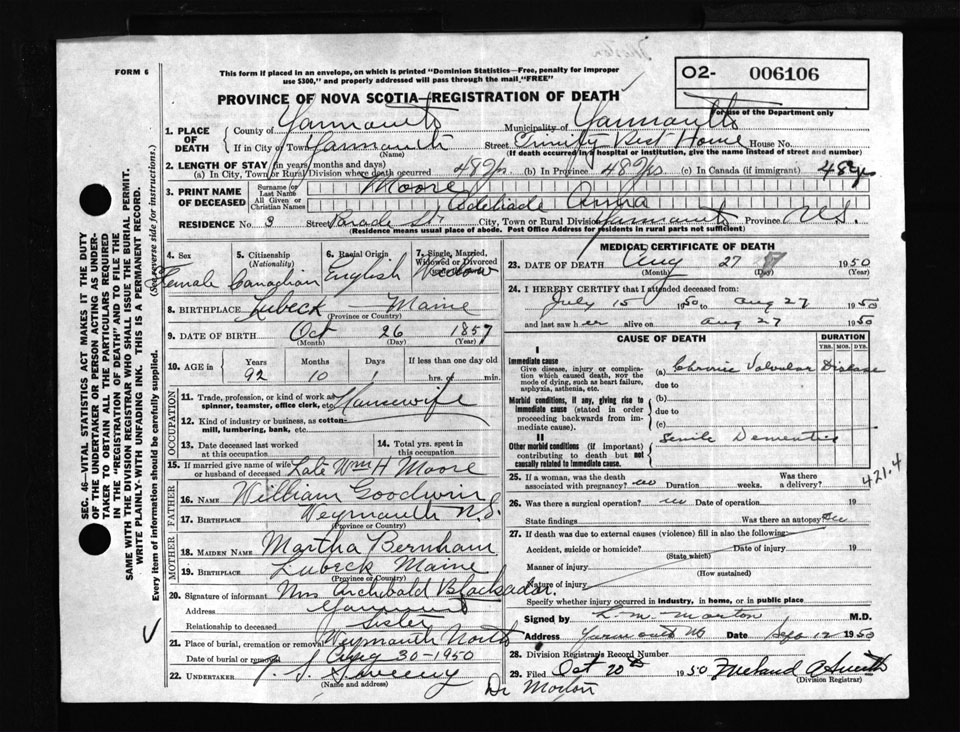 FORM 6
This form if placed in an envelope, on which is printed "Dominion Statistics—Free, penalty for improper
use $300," and properly addressed will pass through the mail "FREE"
O2- 006106
For use of the Department only
PROVINCE OF NOVA SCOTIA—REGISTRATION OF DEATH
1. PLACE OF DEATH County of Yarmouth Municipality of Yarmouth
If in City or Town Yarmouth (Name) Street Trinity Rest Home House No.
(If death occurred in a hospital or institution, give the name instead of street and number)
2. LENGTH OF STAY (in years, months and days)
(a) In City, Town or Rural Division where death occurred 48 Yrs (b) In Province 48 Yrs. (c) In Canada (if immigrant) 48 Yrs
3. PRINT NAME OF DECEASED Surname or Last Name Moore
All Given or Christian Names Adeliade Anna
RESIDENCE No. 3 Street Parade St. City, Town or Rural Division Yarmouth Province N.S.
(Residence means usual place of abode. Post Office Address for residents in rural parts not sufficient)
4. Sex Female
5. Citizenship (Nationality) Canadian
6. Racial Origin English
7. Single, Married, Widowed or Divorced Widow
8. BIRTHPLACE Lubeck — Maine
(Province or Country)
9. DATE OF BIRTH Oct 26 1857
(Month) (Day) (Year)
10. AGE in Years 92 Months 10 Days 1 If less than one day old hrs. or min.
OCCUPATION
11. Trade, profession, or kind of work as spinner, teamster, office clerk, etc. Housewife
12. Kind of industry or business, as cotton-mill, lumbering, bank, etc.
13. Date deceased last worked at this occupation
14. Total yrs. spent in this occupation
15. If married give name of wife or husband of deceased Late Wm H Moore
FATHER
16. Name William Goodwin
17. Birthplace Weymouth N.S.
(Province or Country)
MOTHER
18. Maiden Name Martha Bernham
19. Birthplace Lubeck Maine
(Province or Country)
20. Signature of informant Mrs Archibald Blackadar.
Address Yarmouth
Relationship to deceased Sister
21. Place of burial, cremation or removal Weymouth North
Date of burial or removal Aug 30-1950
22. UNDERTAKER Sweeny
(Name and address)
Dr Morton
MEDICAL CERTIFICATE OF DEATH
23. DATE OF DEATH Aug 27 1950
(Month) (Day) (Year)
24. I HEREBY CERTIFY that I attended deceased from:
July 15 1950 to Aug 27 1950
and last saw her alive on Aug 27 1950
CAUSE OF DEATH
DURATION
YRS. MOS. DYS.
I
Immediate cause
Give disease, injury or complication which caused death, nor the mode of dying, such as heart failure, asphyxia, asthenia, etc.
(a) Chronic Valvular Disease
due to
Morbid conditions, if any, giving rise to immediate cause (stated in order proceeding backwards from immediate cause).
(b)
due to
(c)
II
Other morbid conditions (if important) contributing to death but not causally related to immediate cause.
Senile Dementia
421.4
25. If a woman, was the death associated with pregnancy? no Duration weeks. Was there a delivery?
26. Was there a surgical operation? no Date of operation 19
State findings Was there an autopsy? no
27. If death was due to external causes (violence) fill in also the following:
Accident, suicide or homicide? (State which) Date of injury 19
Manner of injury
(How sustained)
Nature of injury
Specify whether injury occurred in industry, in home, or in public place
Signed by L. M. Morton M.D.
Address Yarmouth NS Date Sept 12 1950
28. Division Registrar's Record Number
29. Filed Oct 20th 1950
(Division Registrar)
SEC. 46—VITAL STATISTICS ACT MAKES IT THE DUTY
OF THE UNDERTAKER OR PERSON ACTING AS UNDER-
TAKER TO OBTAIN ALL THE PARTICULARS REQUIRED
IN THE "REGISTRATION OF DEATH" AND TO FILE THE
SAME WITH THE DIVISION REGISTRAR WHO SHALL ISSUE THE BURIAL PERMIT.
WRITE PLAINLY-WITH UNFADING INK. THIS IS A PERMANENT RECORD.
Every item of information should be carefully supplied. (See reverse side for instructions.)